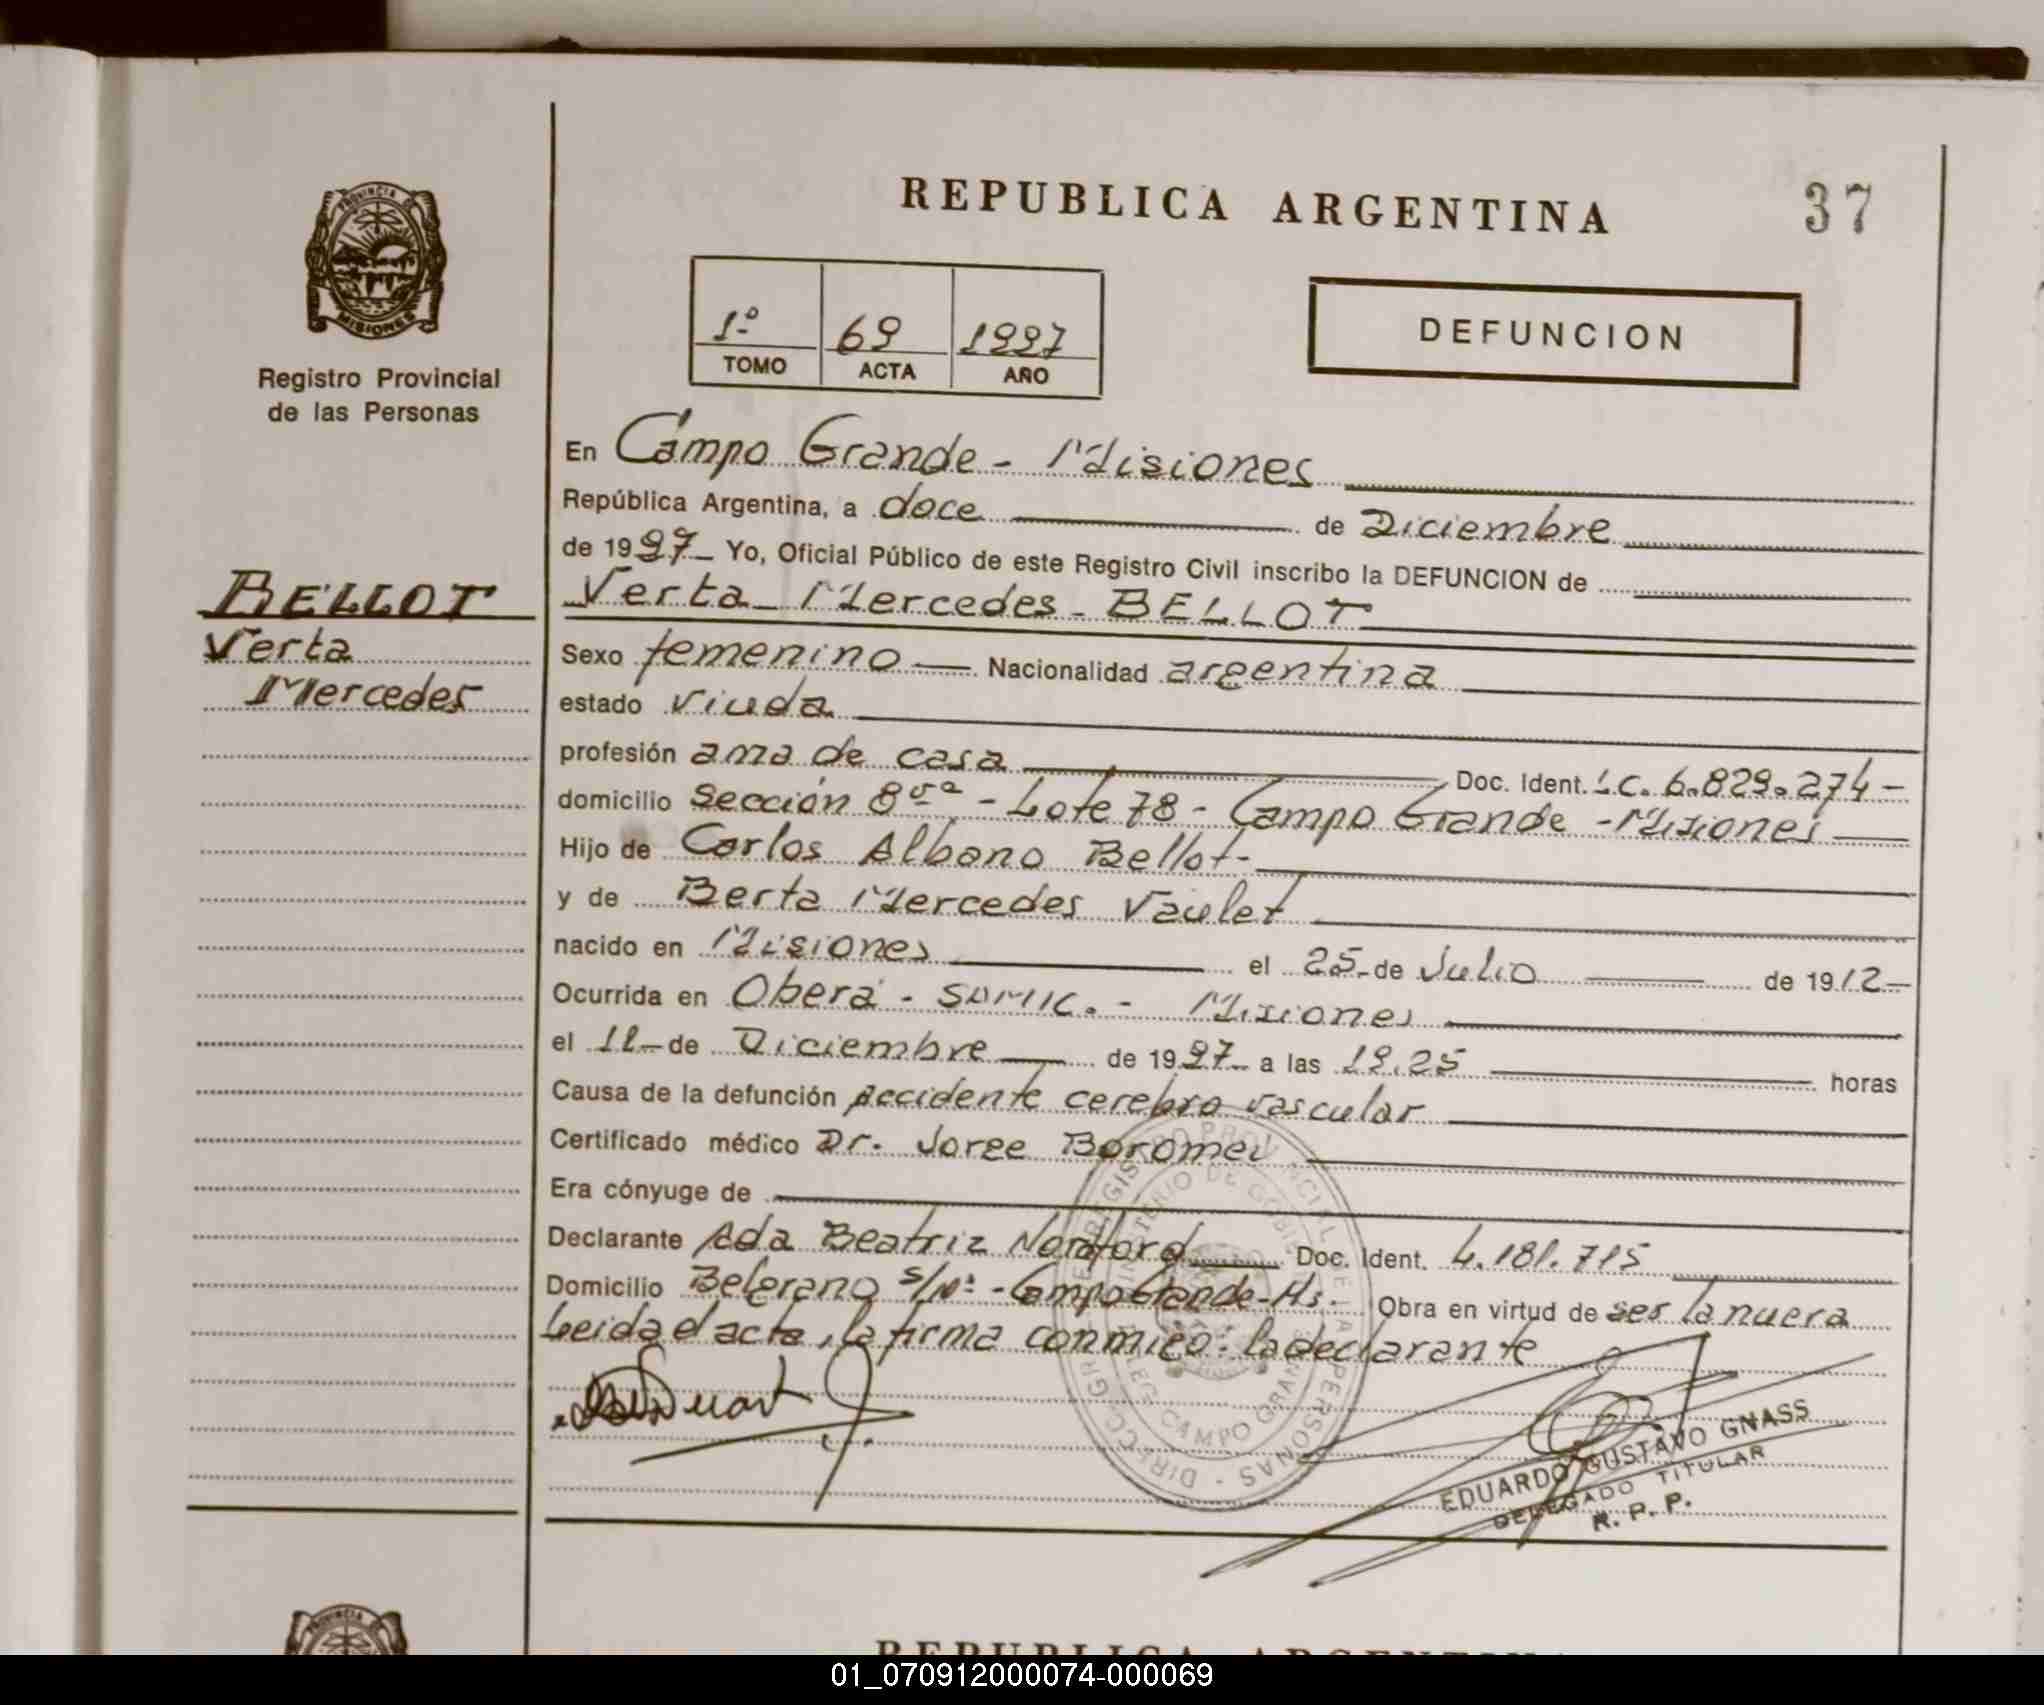 REPUBLICA ARGENTINA
37
PROVINCIA DE
MISIONES
Registro Provincial
de las Personas
1º 69 1997
TOMO ACTA AÑO
DEFUNCION
BELLOT
Verta
Mercedes
En Campo Grande - Misiones
República Argentina, a doce de Diciembre
de 1997 Yo, Oficial Público de este Registro Civil inscribo la DEFUNCION de
Verta Mercedes - BELLOT
Sexo femenino Nacionalidad argentina
estado viuda
profesión ama de casa Doc. Ident. L.C. 6.829.274-
domicilio Sección 8va - Lote 78 - Campo Grande - Misiones
Hijo de Carlos Albano Bellot-
y de Berta Mercedes Vaulet
nacido en Misiones el 25 de Julio de 1912
Ocurrida en Oberá - SAMIC. - Misiones
el 11 de Diciembre de 1997 a las 19.25 horas
Causa de la defunción Accidente cerebro vascular
Certificado médico Dr. Jorge
Era cónyuge de
Declarante Ada Beatriz Doc. Ident. 4.181.715
Domicilio Belgrano s/Nº - Campo Grande - Ms. Obra en virtud de ser la nuera
Leida el acta, la firma conmigo: la declarante
EDUARDO GUSTAVO GNASS
DELEGADO TITULAR
R. P. P.
REPUBLICA ARGENTINA
01_070912000074-000069